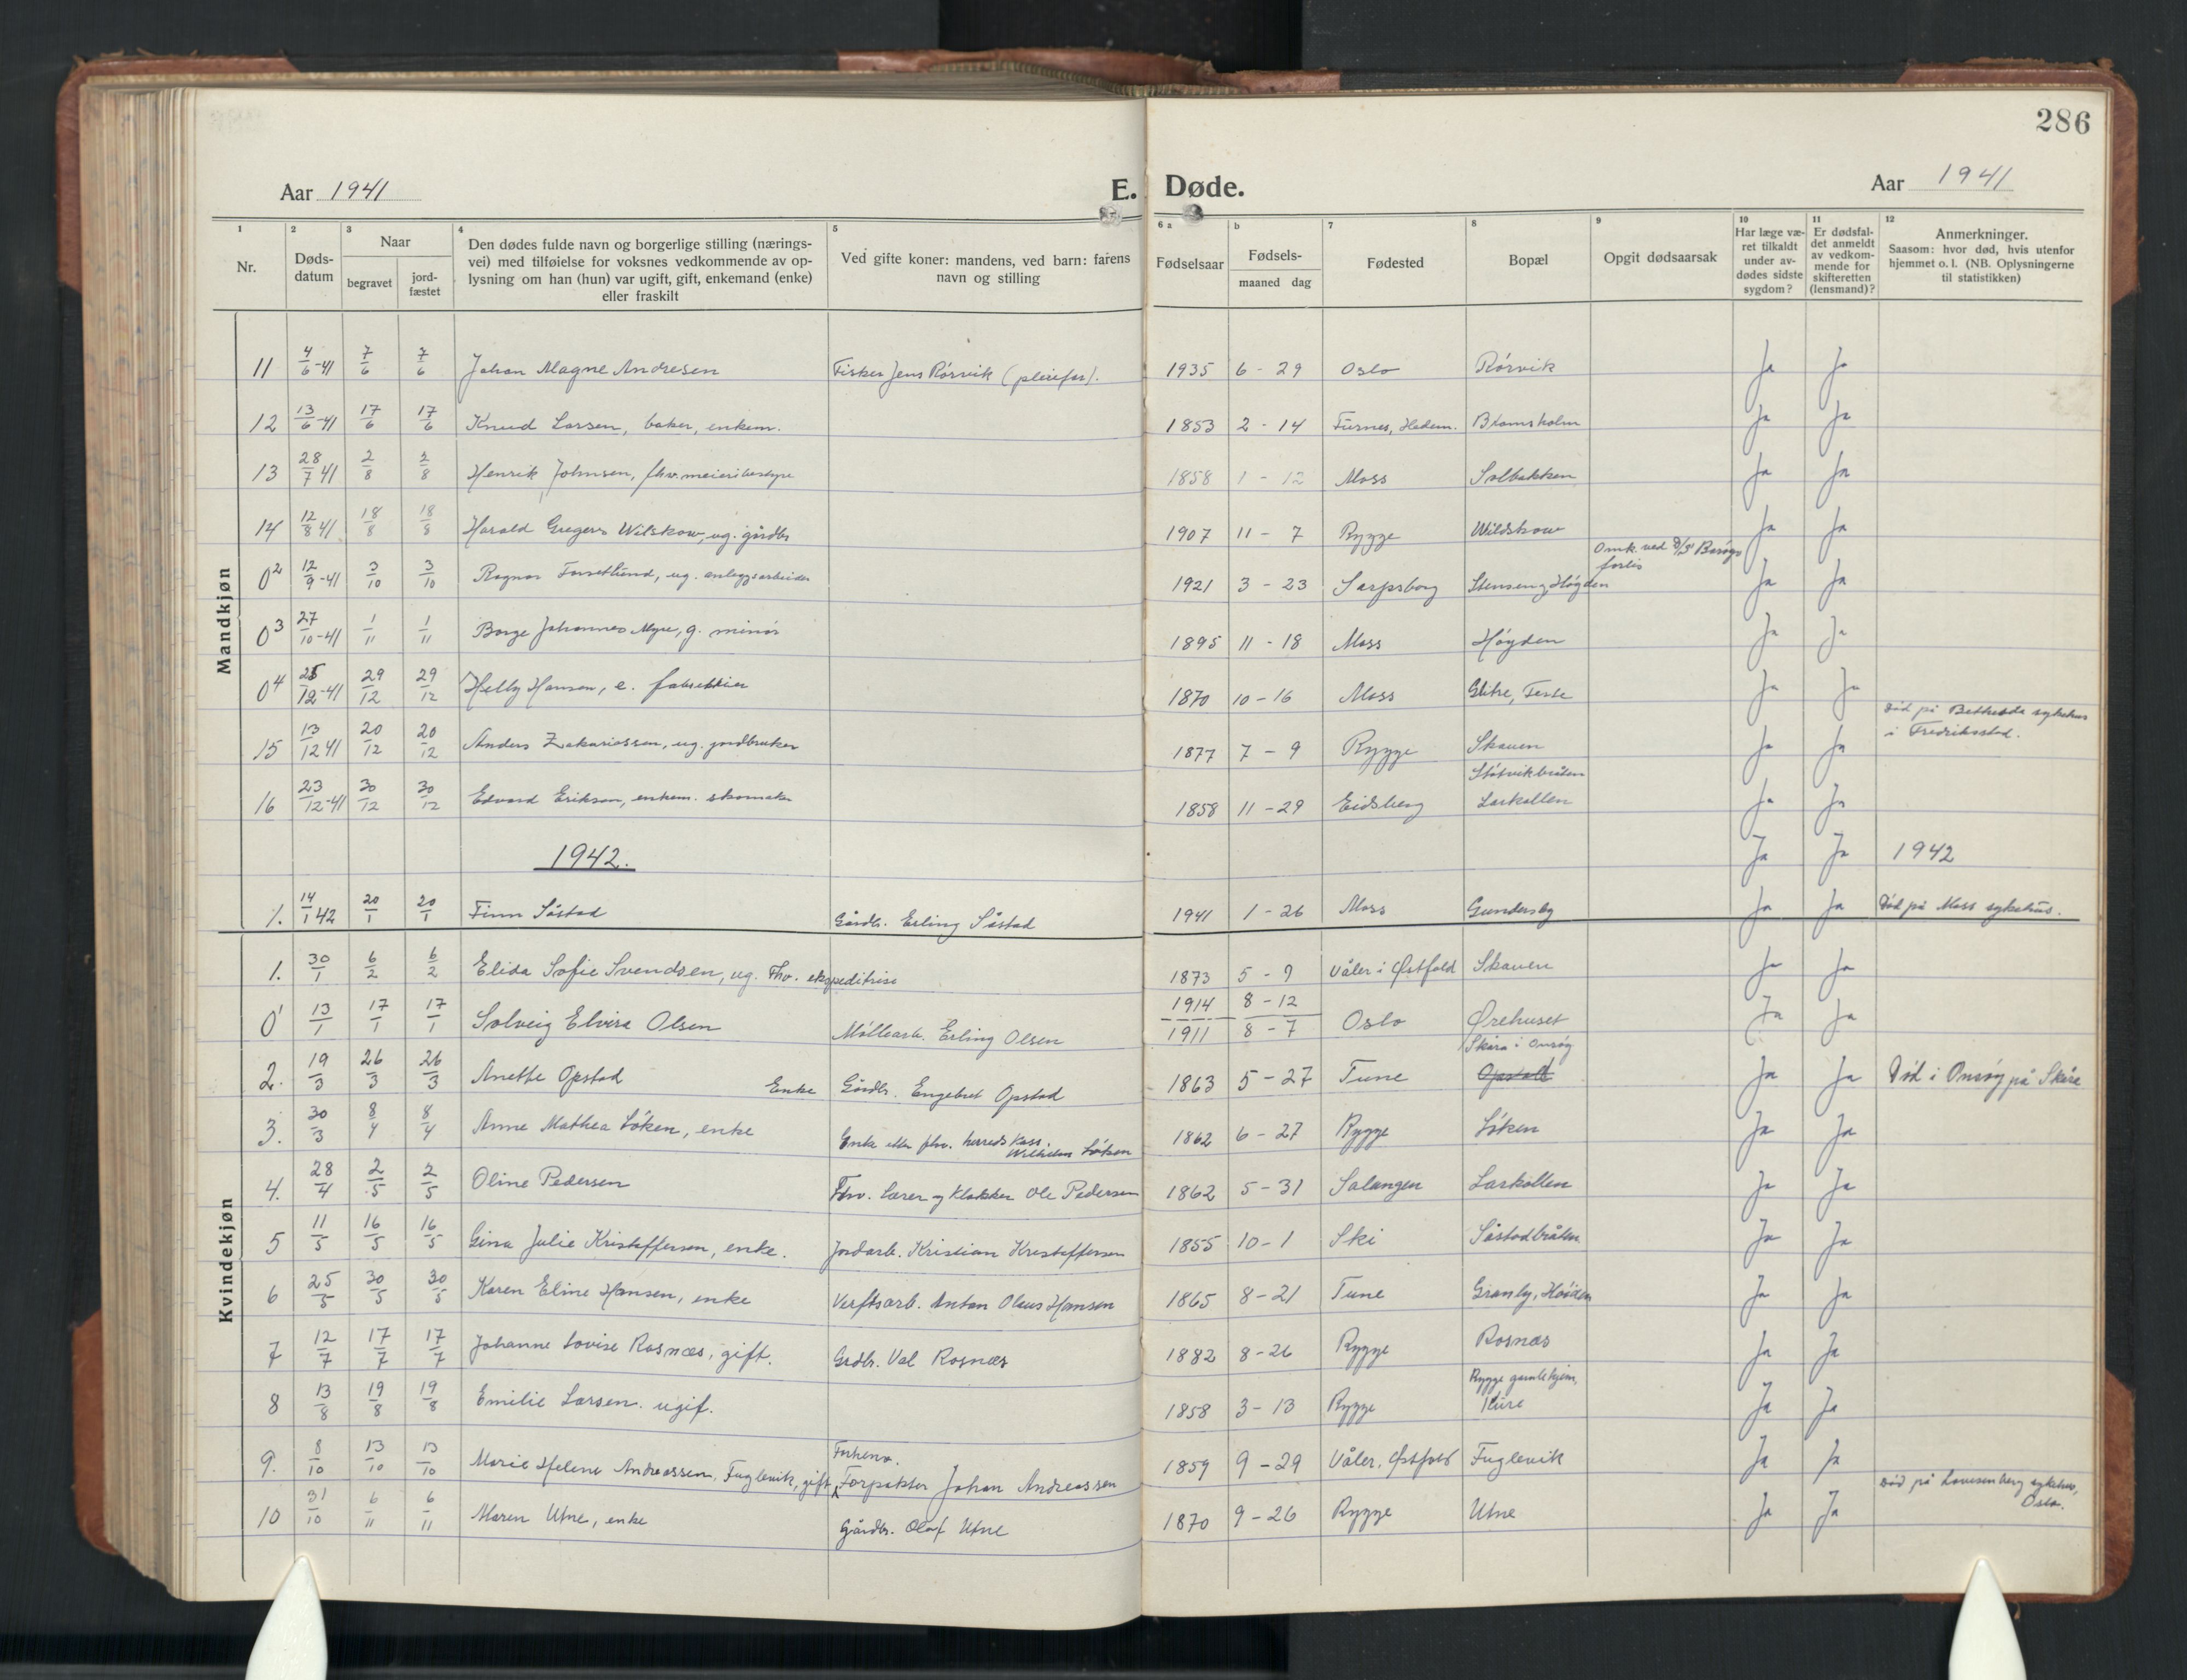 286
Aar 1941
E. Døde.
Aar 1941
1 Nr.
2 Døds-datum
3 Naar
begravet
jord-fæstet
4 Den dødes fulde navn og borgerlige stilling (nærings-
vei) med tilføielse for voksnes vedkommende av op-
lysning om han (hun) var ugift, gift, enkemand (enke)
eller fraskilt
5 Ved gifte koner: mandens, ved barn: farens
navn og stilling
6 a Fødselsaar
b Fødsels-
maaned dag
7 Fødested
8 Bopæl
9 Opgit dødsaarsak
10 Har læge væ-
ret tilkaldt
under av-
dødes sidste
sygdom?
11 Er dødsfal-
det anmeldt
av vedkom-
mende for
skifteretten
(lensmand)?
12 Anmerkninger.
Saasom: hvor død, hvis utenfor
hjemmet o. l. (NB. Oplysningerne
til statistikken)
Mandkjøn
11 4/6-41 7/6 7/6 Johan Magne Andresen Fisker Jens Rørvik (pleiefar). 1935 6 - 29 Oslo Rørvik Ja Ja
12 13/6-41 17/6 17/6 Knud Larsen, baker, enkem. 1853 2 - 14 Furnes, Hedem. Bramsholm Ja Ja
13 28/7 41 2/8 2/8 Henrik Johnsen, fhv. meieribestyr 1858 1 - 12 Moss Solbakken Ja Ja
14 12/8 41 18/8 18/8 Harald Gregers Wilskow, ug. gårdbr 1907 11 - 7 Rygge Wildskow Ja Ja
Omk. ved D/S Barøys
forlis
0 2 12/9-41 3/10 3/10 Ragnar Forsetlund, ug. anleggsarbeider 1921 3 - 23 Sarpsborg Stenseng Høgden Ja Ja
0 3 27/10-41 1/11 1/11 Borge Johannes Myre, g. minør 1895 11 - 18 Moss Høyden Ja Ja
0 4 25/12-41 29/12 29/12 Helly Hansen, e. fabrikkeier 1870 10 - 16 Moss Glitre, Ja Ja
Død på Bethesda sykehus
i Fredrikstad.
15 13/12 41 20/12 20/12 Anders Zakariassen, ug. jordbruker 1877 7 - 9 Rygge Skauen Ja Ja
Støtvikbråten
16 23/12-41 30/12 30/12 Edvard Erikson, enkem. skomaker 1858 11 - 29 Eidsberg Larkollen Ja Ja
1942. Ja Ja 1942
1. 14/1 42 20/1 20/1 Finn Såstad Gårdbr. Erling Såstad 1941 1 - 26 Moss Gunderby Ja Ja Død på Moss sykehus.
Kvindekjøn
1. 30/1 6/2 6/2 Elida Sofie Svendsen, ug. Fhv. ekspeditrise 1873 5 - 9 Våler i Østfold Skauen Ja Ja
1914 8 - 12
0 1 13/1 17/1 17/1 Solveig Elvira Olsen Møllearb. Erling Olsen 1911 8 - 7 Oslo Ørehuset Ja Ja
Skåra i Onsøy
2. 19/3 26/3 26/3 Anette Opstad Enke Gårdbr. Engebret Opstad 1863 5 - 27 Tune Opstad Ja Ja Død i Onsøy på Skåra
3. 30/3 8/4 8/4 Anne Mathea Løken, enke Enke etter fhv. herreds kass. Wilhelm Løken 1862 6 - 27 Rygge Løken Ja Ja
4. 28/4 2/5 2/5 Oline Pedersen Fhv. Lærer og klokker Ole Pedersen 1862 5 - 31 Salangen Larkollen Ja Ja
5 11/5 16/5 16/5 Gina Julie Kristoffersen, enke. Jordarb. Kristian Kristoffersen 1855 10 - 1 Ski Såstadbråten Ja Ja
6 25/5 30/5 30/5 Karen Eline Hansen, enke Verftsarb. Anton Olaus Hansen 1865 8 - 21 Tune Granly, Høiden Ja Ja
7 12/7 17/7 17/7 Johanne Lovise Rosnæs, gift. Grdbr. Val Rosnæs 1882 8 - 26 Rygge Rosnæs Ja Ja
Rygge gamlehjem,
8 13/8 19/8 19/8 Emilie Larsen. ugif. 1858 3 - 13 Rygge Kure Ja Ja
Forhenv.
9. 8/10 13/10 13/10 Marie Helene Andreassen, Fuglevik, gift Forpakter Johan Andreassen 1859 9 - 29 Våler, Østfold Fuglevik Ja Ja
Død på Lovisenberg sykehus,
Oslo.
10 31/10 6/11 6/11 Maren Utne, enke Gårdbr. Olaf Utne 1870 9 - 26 Rygge Utne Ja Ja